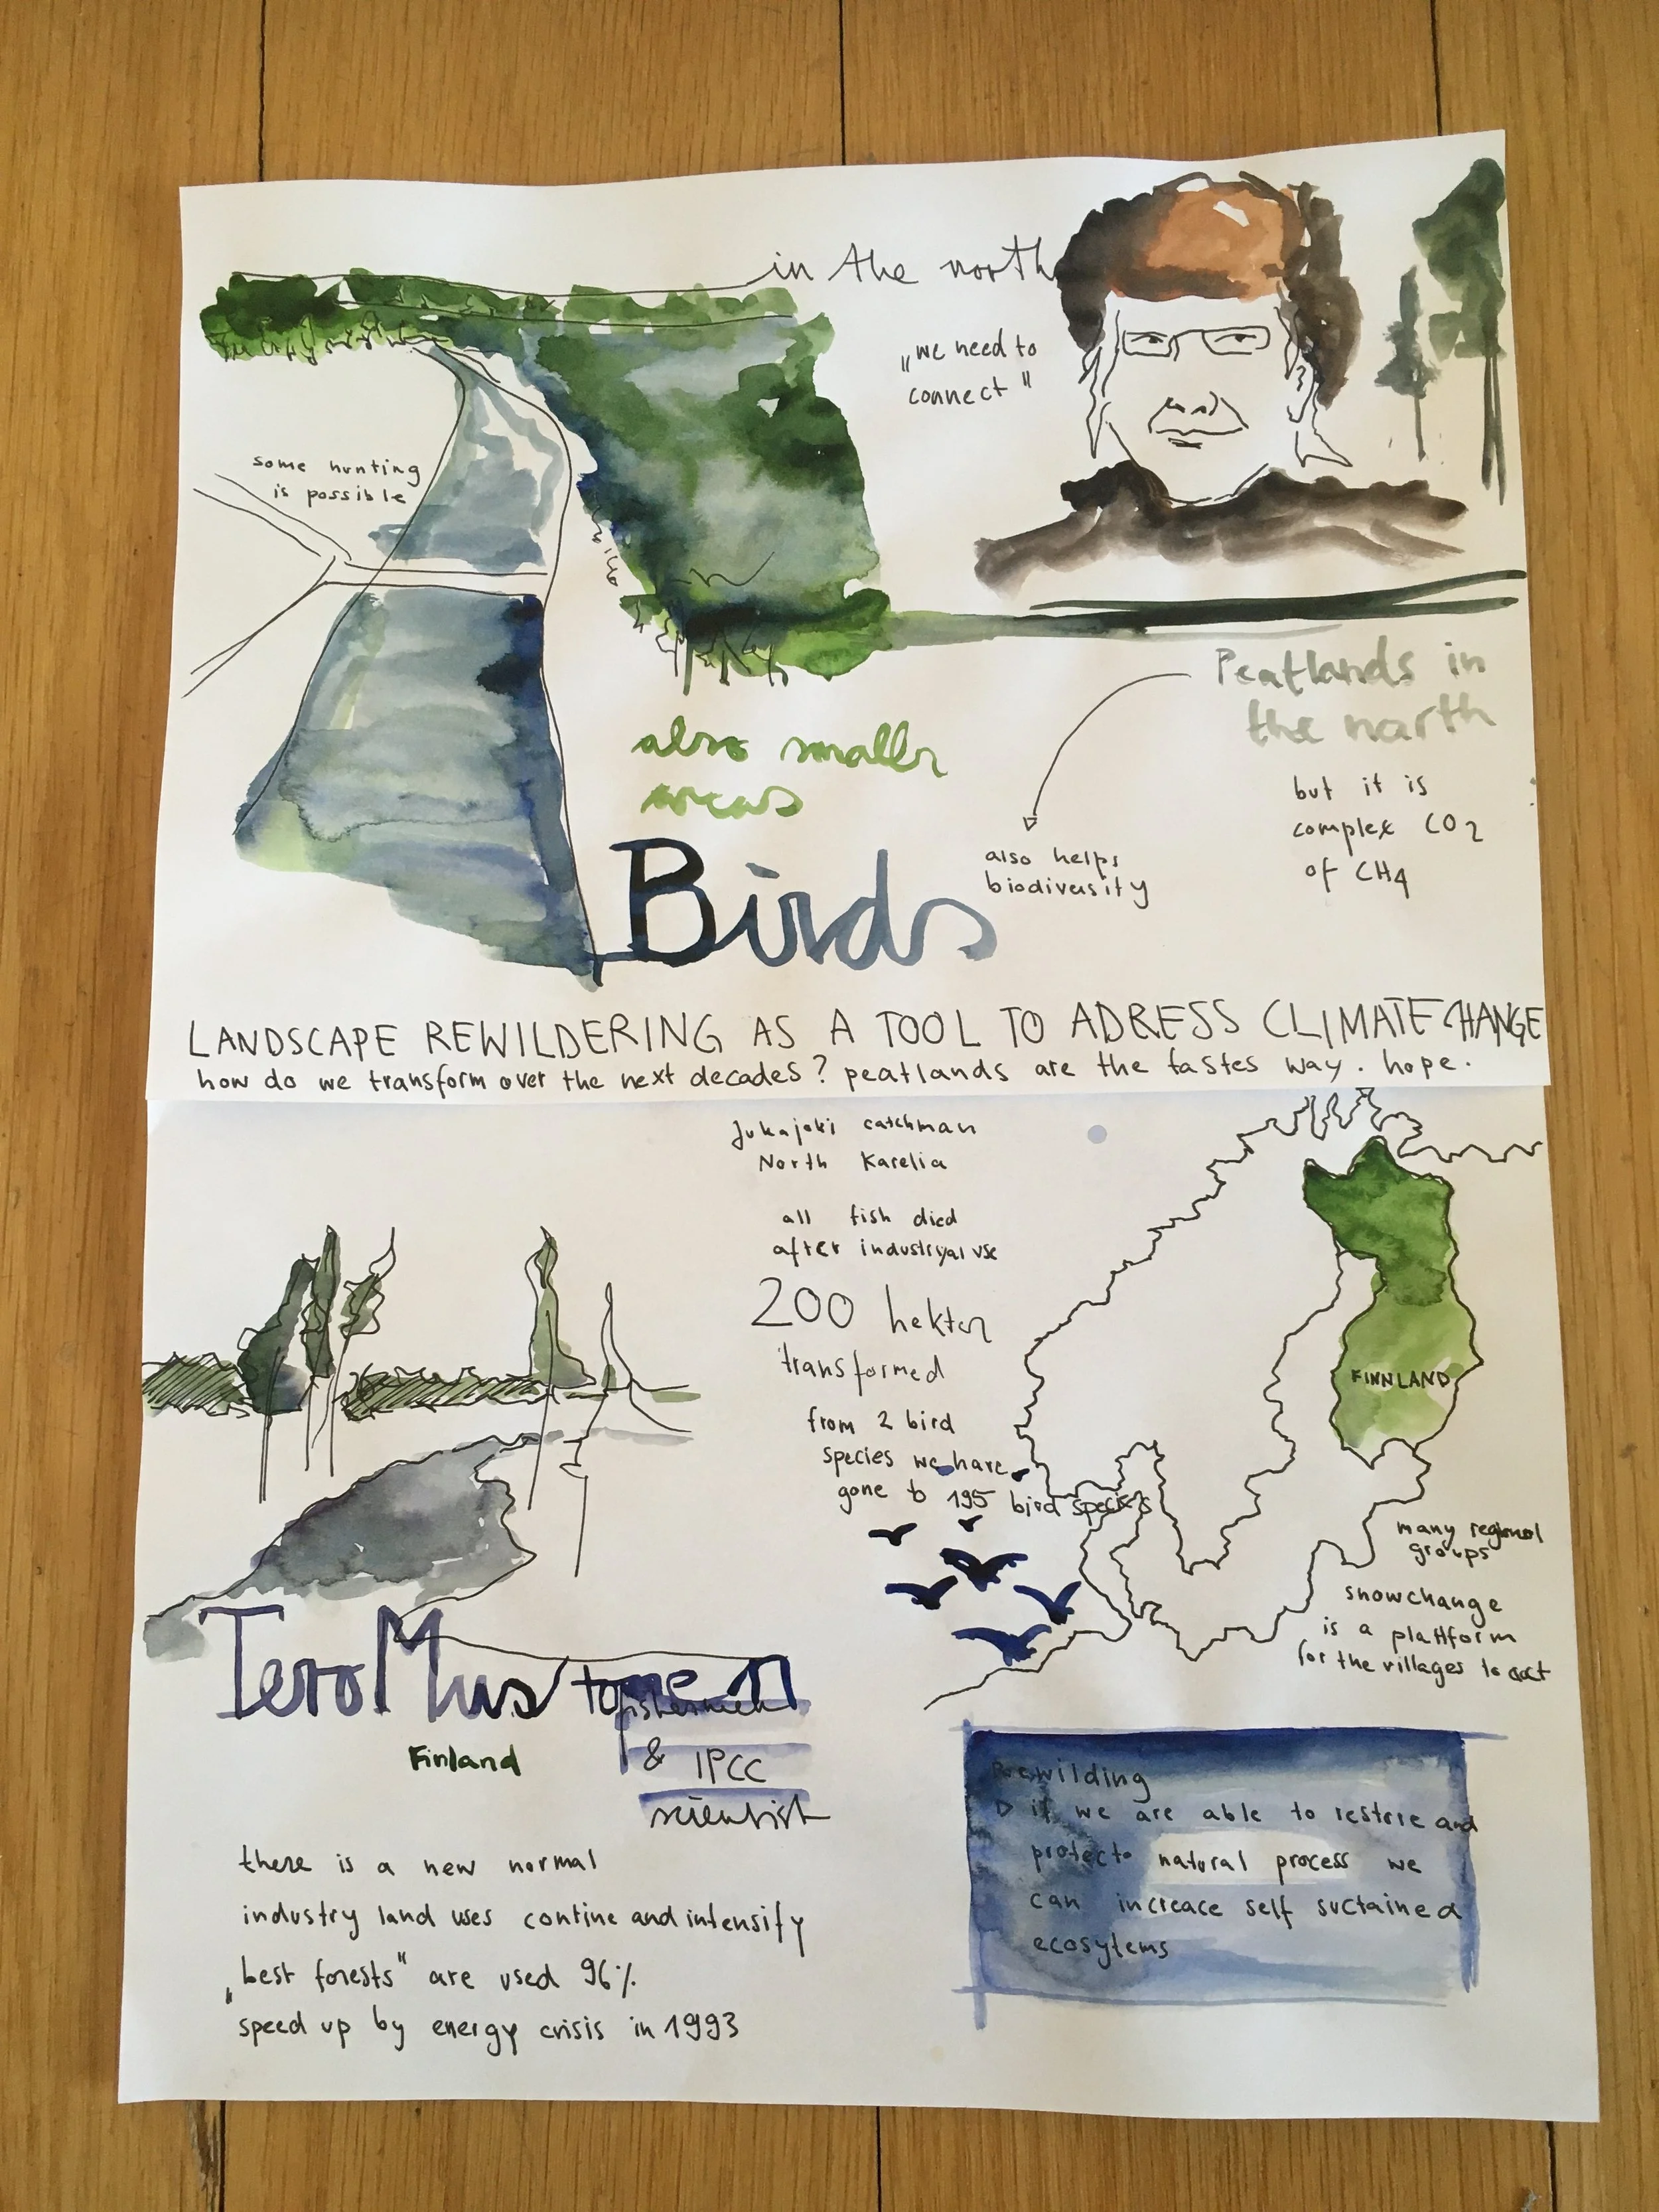 in the north
„we need to
connect"
some hunting
is possible
also smaller
areas
Peatlands in
the north
but it is
complex CO2
of CH4
also helps
biodiversity
Birds
LANDSCAPE REWILDERING AS A TOOL TO ADRESS CLIMATE CHANGE
how do we transform over the next decades? peatlands are the fastes way. hope.
Jukajoki catchman
North Karelia
all fish died
after industryal use
200 hektar
transformed
from 2 bird
species we have
gone to 195 bird species
FINNLAND
many regional
groups
snowchange
is a plattform
for the villages to act
Tero Mustonen
Finland
fishermen
& IPCC
scientist
there is a new normal
industry land uses contine and intensify
„best forests" are used 96%
speed up by energy crisis in 1993
Rewilding
if we are able to restrie and
protect natural process we
can increase self suctained
ecosytems